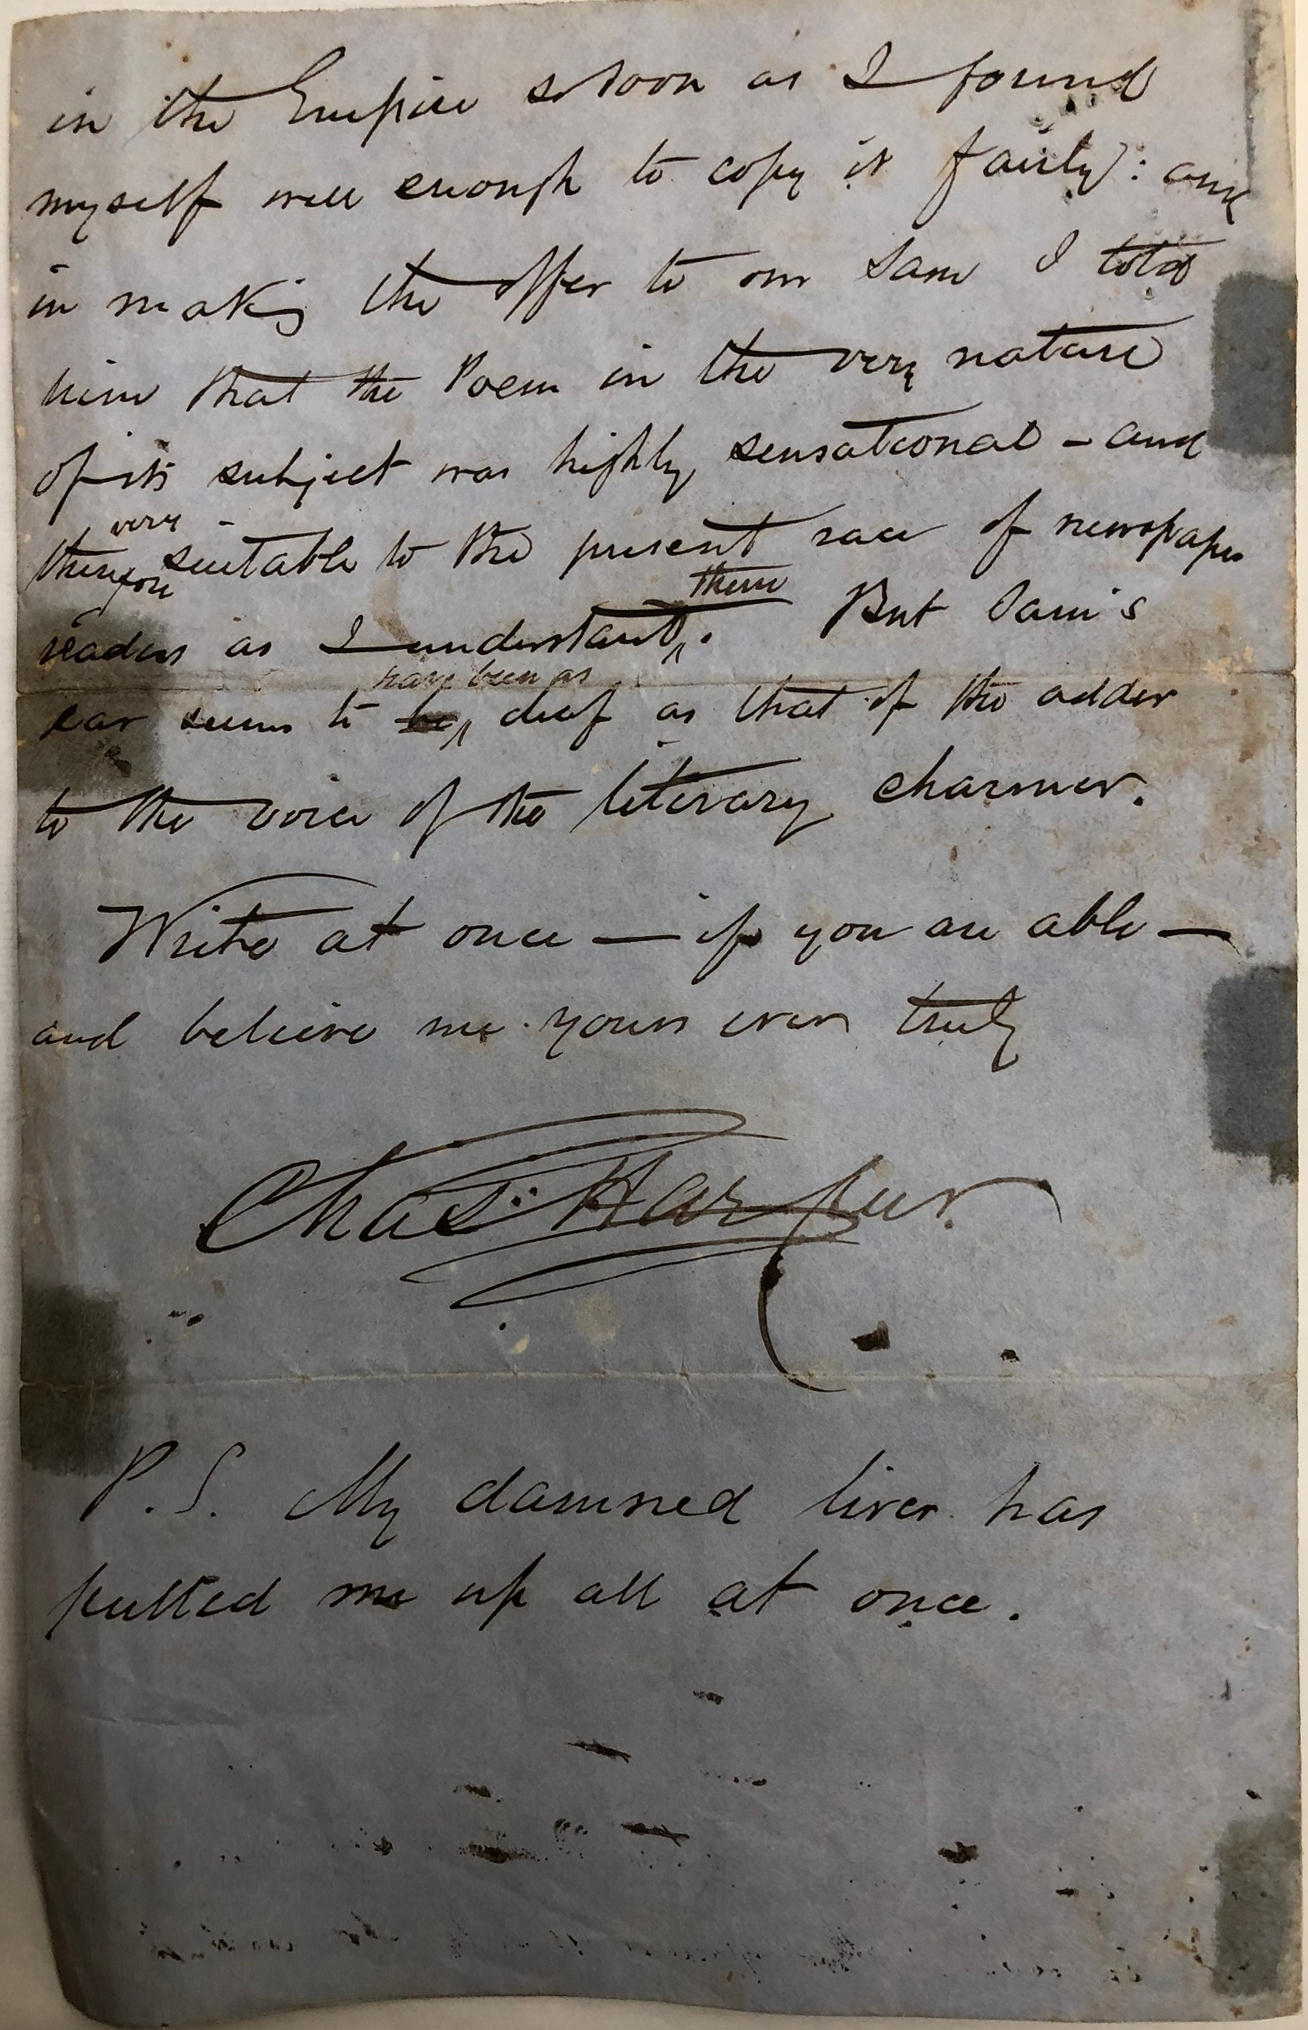 in the Empire so soon as I found
myself well enough to copy it fairly: and
in making the offer to our Sam I told
him that the Poem in the very nature
of its subject was highly sensational – and
therefore very suitable to the present race of newspaper
readers as I understand them. But Sam's
ear seems to be have been as deaf as that of the adder
to the voice of the literary charmer.
Write at once — if you are able —
and believe me yours ever truly
Chas. Harpur.
P.S. My damned liver has
pulled me up all at once.